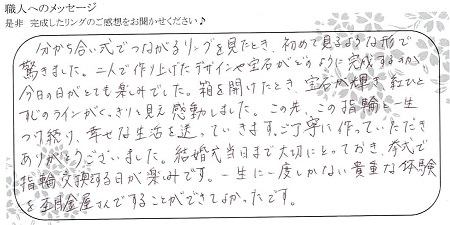 職人へのメッセージ
是非 完成したリングのご感想をお聞かせください♪
分かち合い式でつながるリングを見たとき、初めて見るような形で
驚きました。二人で作り上げたデザインや宝石がどのように完成するのか
今日の日がとても楽しみでした。箱を開けたとき、宝石が輝き、紅ひと
すじのラインがくっきりと見え感動しました。この先、この指輪と一生
つけ続け、幸せな生活を送っていきます。ご丁寧に作っていただき
ありがとうございました。結婚式当日まで大切にとっておき、挙式で
指輪交換する日が楽しみです。一生に一度しかない貴重な体験
を杢目金屋さんですることができてよかったです。